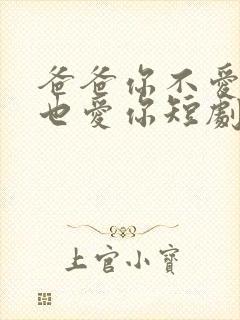 爸爸你不愛
也愛你短劇
上官小寶